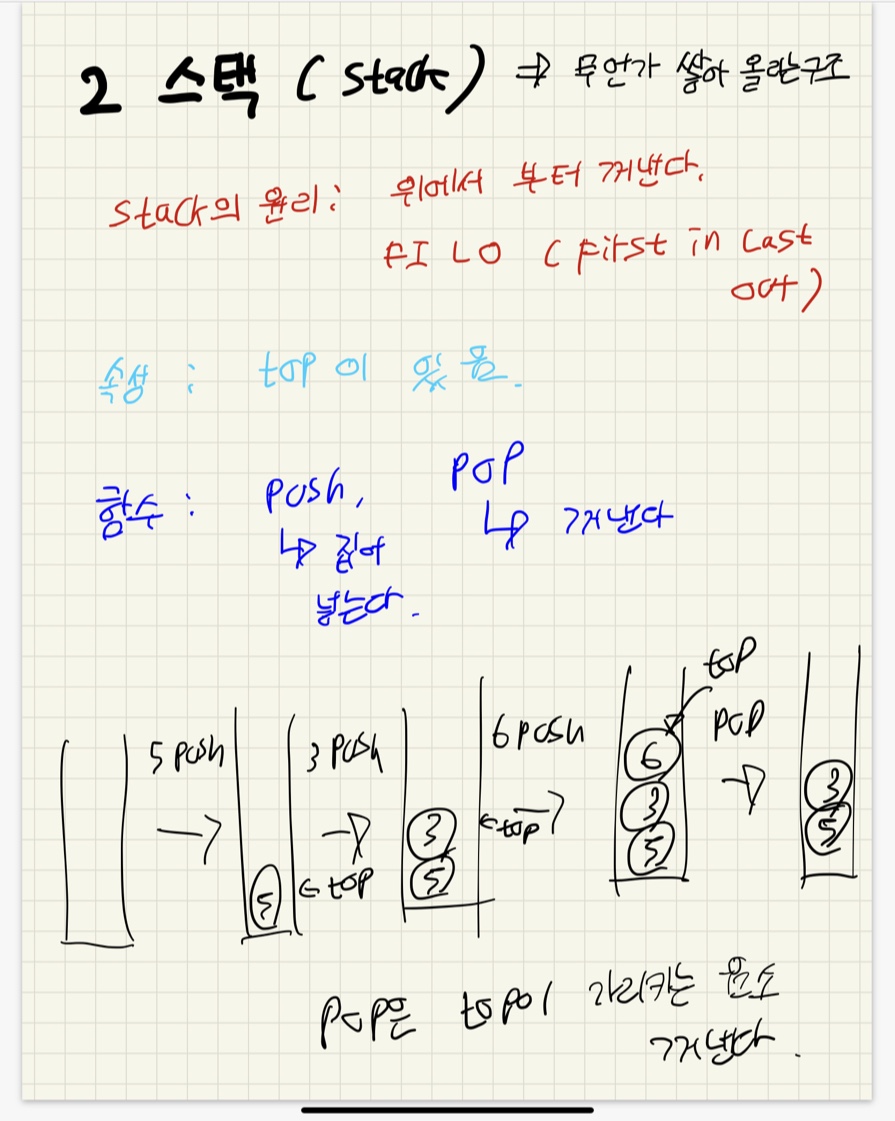 2 스택 (stack) ⇒ 무언가 쌓아 올라는구조
stack의 원리: 위에서 부터 꺼낸다.
FILO (First in Last
out)
속성 : top이 있음.
함수 : push, pop
↳ 집어 ↳ 꺼낸다
넣는다.
top
5 push 3 push 6 push pop
→ → → →
6
3 3 3
5 ← top 5 ← top 5 5
pop은 top이 가리키는 원소
꺼낸다.